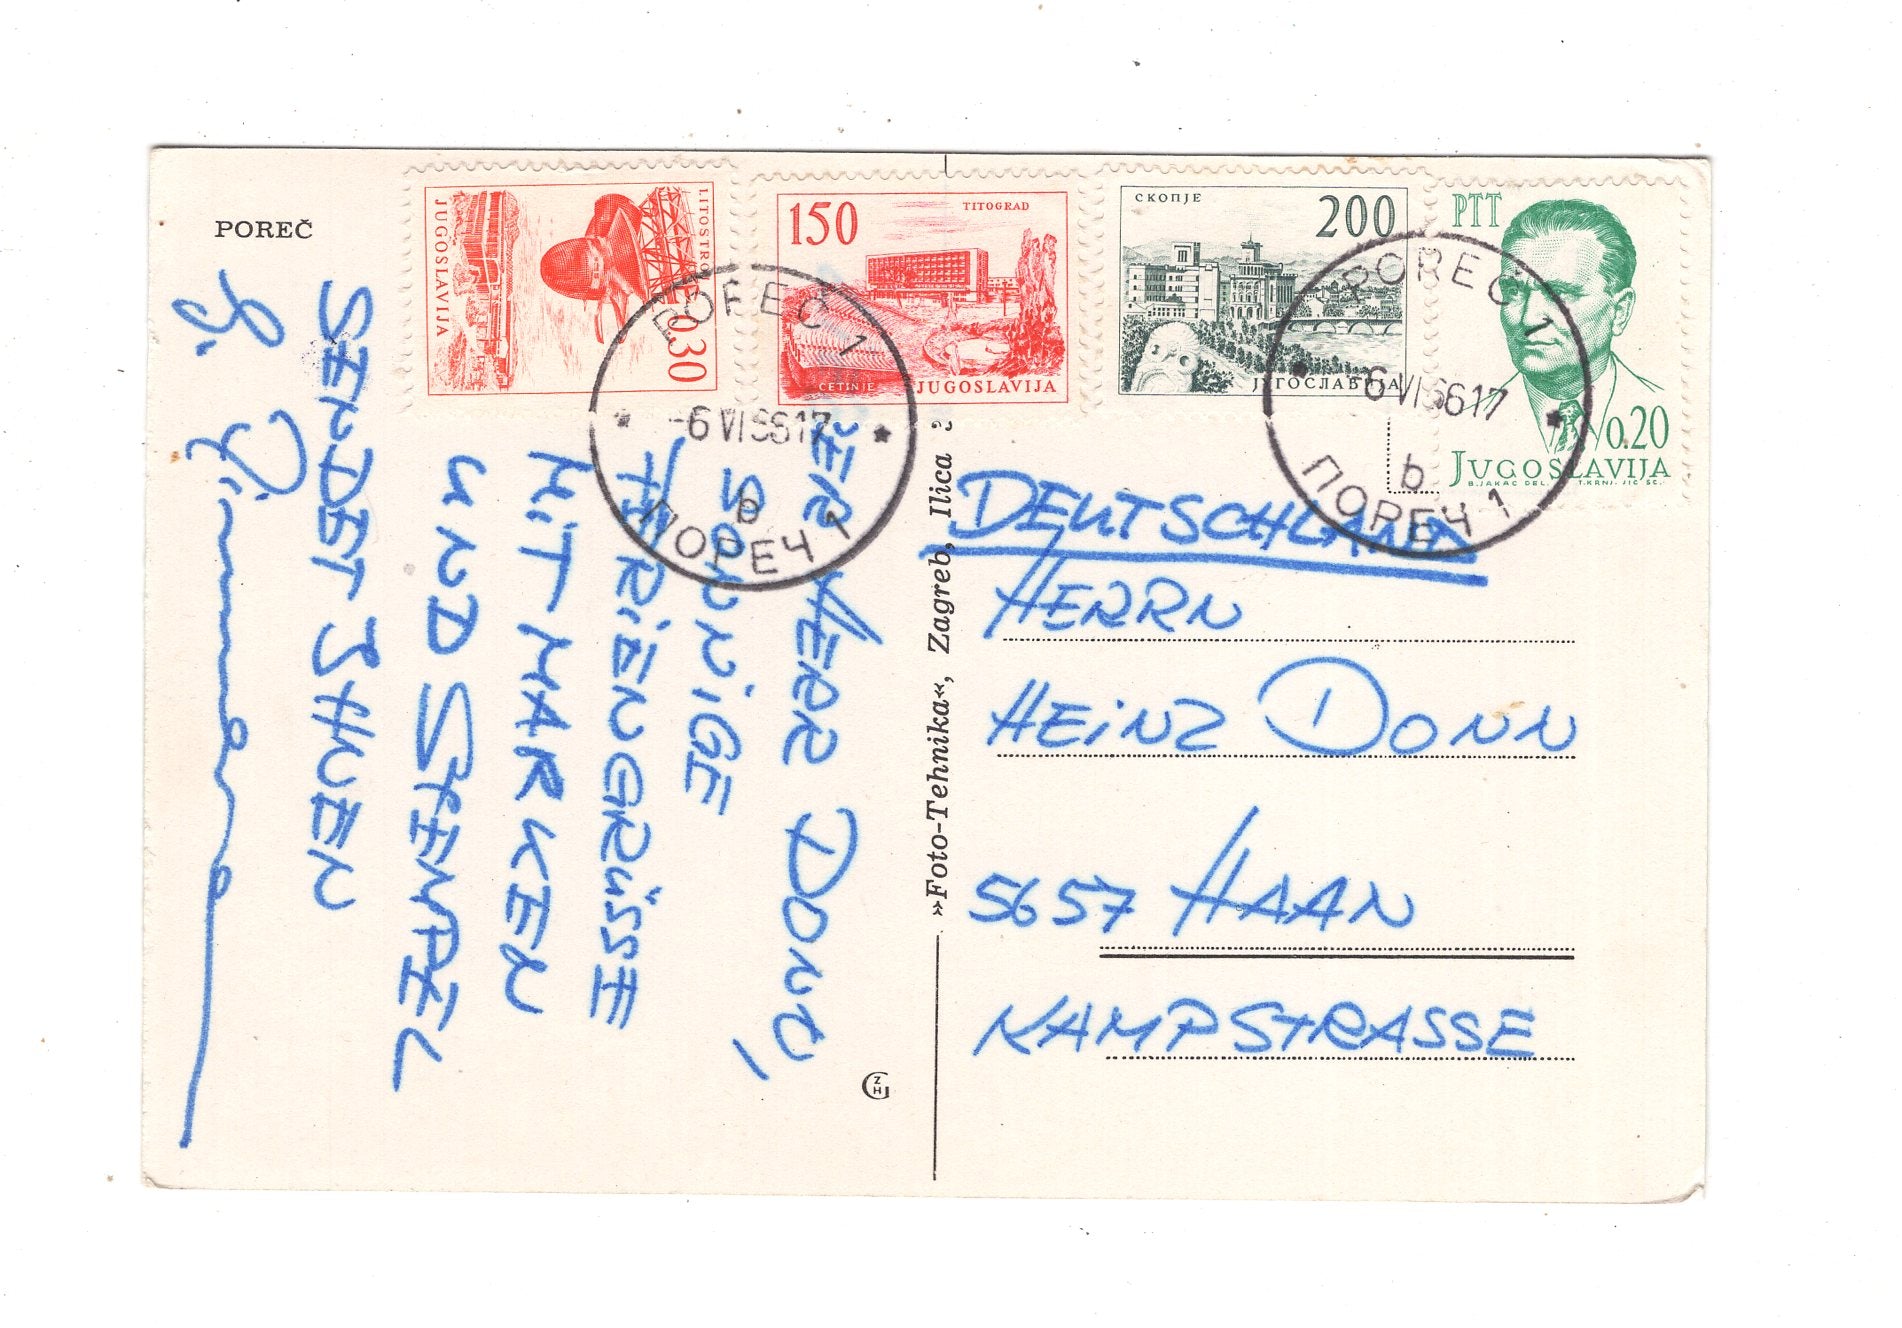 POREČ
LITOSTROJ
0.30
JUGOSLAVIJA
150
TITOGRAD
CETINJE
JUGOSLAVIJA
СКОПЈЕ
200
ЈУГОСЛАВИЈА
PTT
0.20
JUGOSLAVIJA
B. JAKAC DEL.
POREČ 1
-6 VI 66 17
b
ПОРЕЧ 1
POREČ 1
-6 VI 66 17
b
ПОРЕЧ 1
HERR DONN,
SONNIGE
FERIENGRÜSSE
MIT MARKEN
UND STEMPEL
SENDET IHNEN
»Foto-Tehnika«, Zagreb, Ilica
ZGH
DEUTSCHLAND
HERRN
HEINZ DONN
5657 HAAN
KAMPSTRASSE